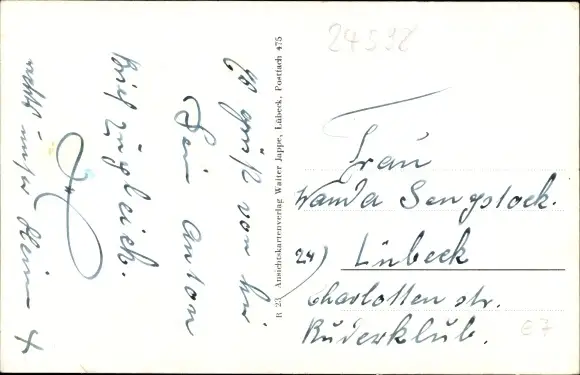 Es grüßt von hier
Dein Anton
Brief zugleich.
rechts unser Heim X
R 23 Ansichtskartenverlag Walter Jappe, Lübeck, Postfach 475
24598
Frau
Wanda Sengstock.
24) Lübeck
Charlotten str.
Ruderklub.
E7